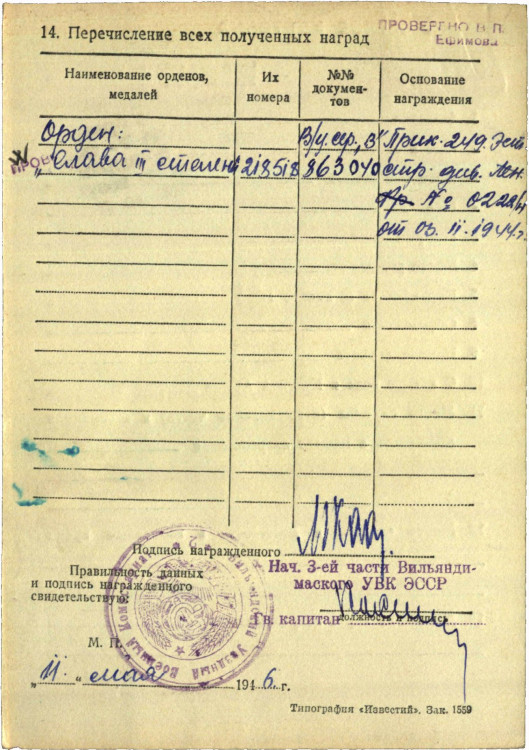 ПРОВЕРЕНО В П.
Ефимова
14. Перечисление всех полученных наград
Наименование орденов, медалей
Их номера
№№ документов
Основание награждения
Орден: В/у. сер. „В" Прик. 249. Эст.
„Слава III степени 218518 863040 стр. див. Лен.
фр. № 022/н
от 03. 11. 1944 г.
Подпись награжденного
Правильность данных
и подпись награжденного
свидетельствую:
Нач. 3-ей части Вильянди-
маского УВК ЭССР
Гв. капитан
должность и подпись
М. П.
„11." мая 1946 г.
Типография «Известий». Зак. 1559